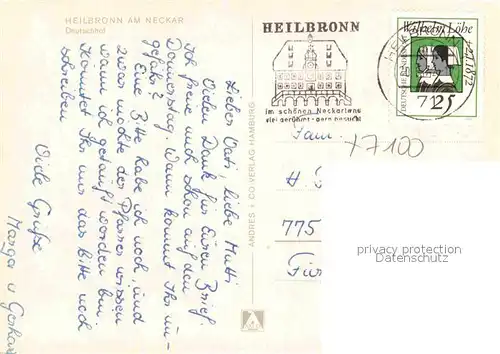 HEILBRONN AM NECKAR
Deutschhof
Lieber Vati, liebe Mutti
Vielen Dank für Euren Brief.
Ich freue mich schon auf den
Donnerstag. Wann kommt Ihr un-
gefähr?
Eine Bitte habe ich noch, und
zwar möchte der Pfarrer wissen
wann ich getauft worden bin.
Könntet Ihr uns das bitte noch
schreiben
Viele Grüße
Marga u. Gerhard
ANDRES + CO VERLAG HAMBURG
HEILBRONN
im schönen Neckarland
viel gerühmt - gern besucht
Wilhelm Löhe
DEUTSCHE BUNDESPOST
25
712
Fam.
H.
775
+7100
privacy protection
© Danimarkt.com